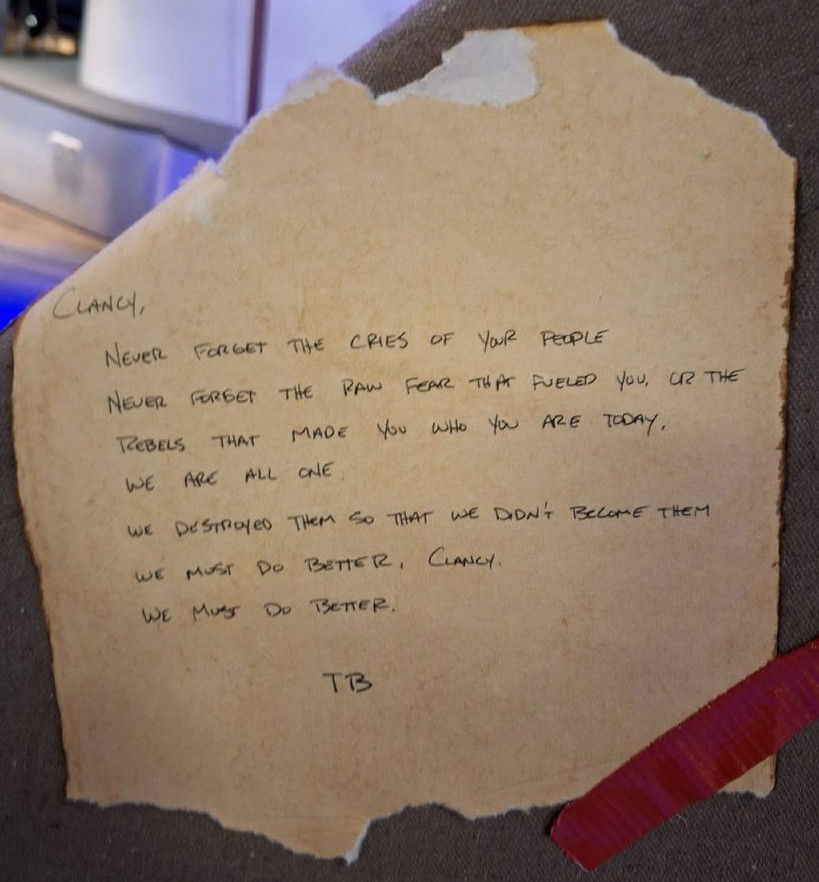 CLANCY,
NEVER FORGET THE CRIES OF YOUR PEOPLE
NEVER FORGET THE RAW FEAR THAT FUELED YOU, OR THE
REBELS THAT MADE YOU WHO YOU ARE TODAY.
WE ARE ALL ONE
WE DESTROYED THEM SO THAT WE DIDN'T BECOME THEM
WE MUST DO BETTER, CLANCY.
WE MUST DO BETTER.
TB